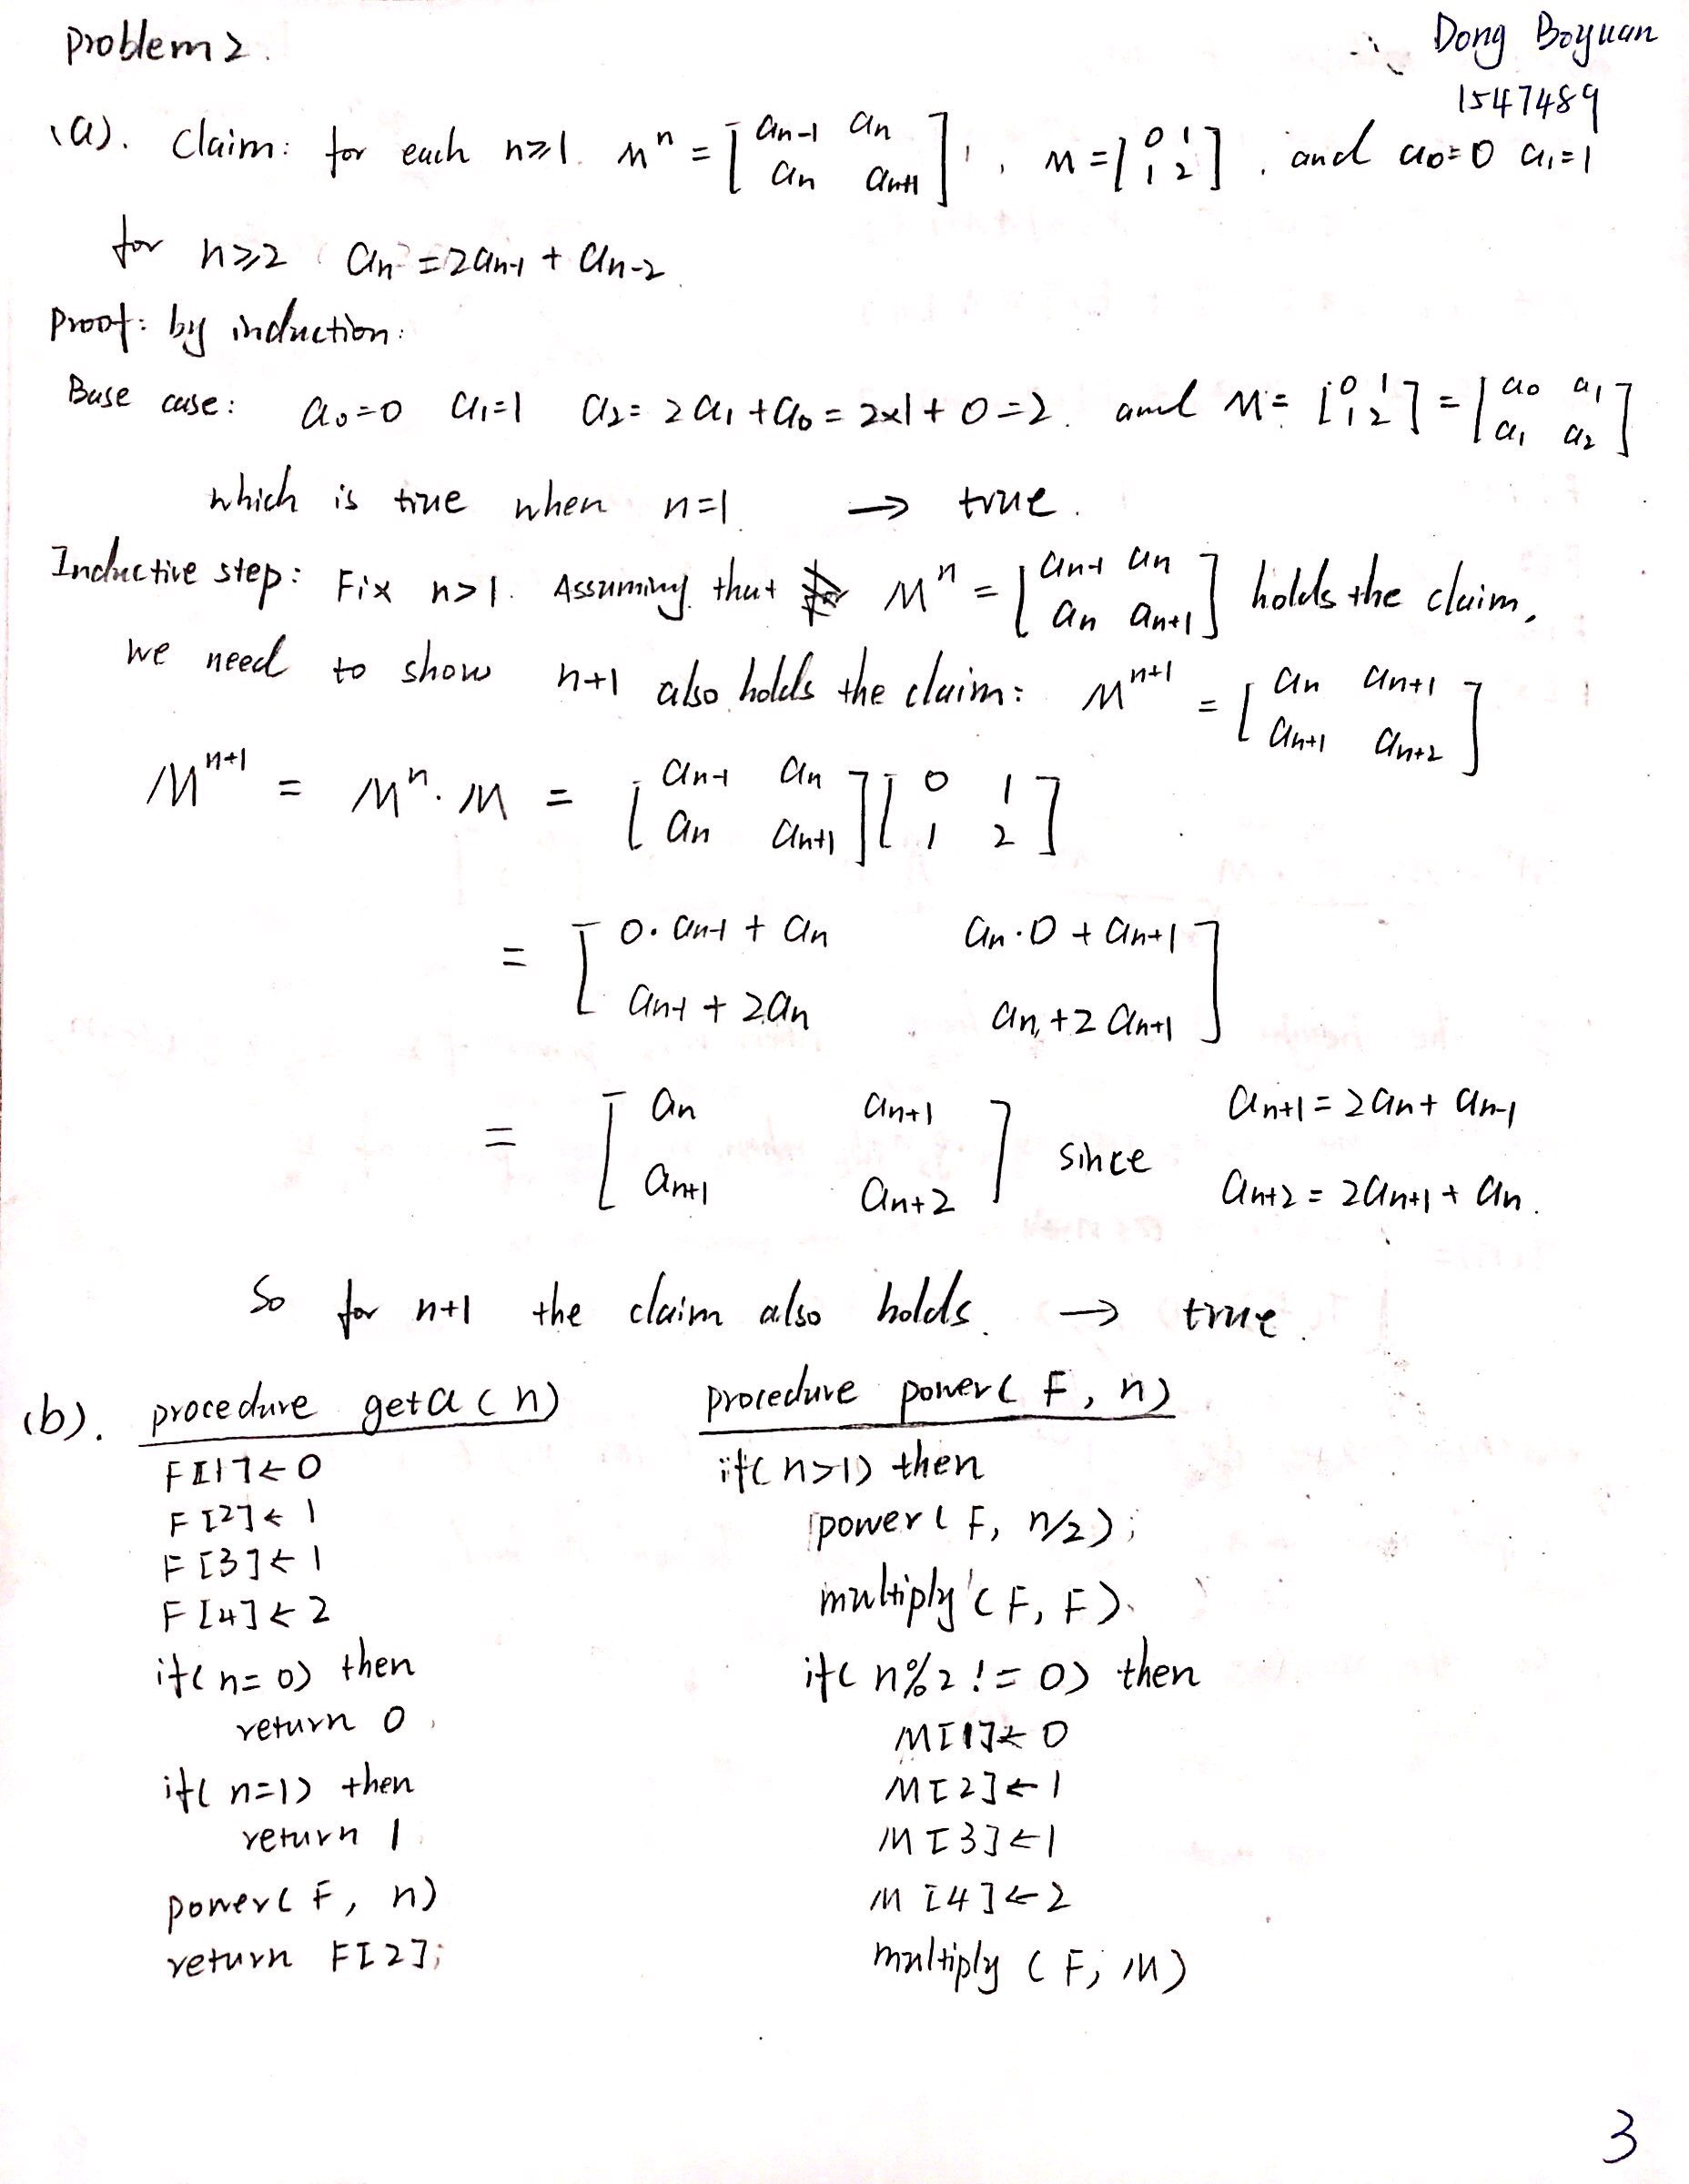 Problem 2.
Dong Boyuan
1547489
(a). Claim: for each n≥1. Mⁿ = [ an-1 an ; an an+1 ], M = [ 0 1 ; 1 2 ], and a0=0 a1=1
for n≥2 an = 2an-1 + an-2
Proof: by induction:
Base case: a0=0 a1=1 a2 = 2a1 + a0 = 2×1 + 0 = 2. and M = [ 0 1 ; 1 2 ] = [ a0 a1 ; a1 a2 ]
which is true when n=1 → true.
Inductive step: Fix n>1. Assuming that Mⁿ = [ an-1 an ; an an+1 ] holds the claim,
we need to show n+1 also holds the claim: Mⁿ⁺¹ = [ an an+1 ; an+1 an+2 ]
Mⁿ⁺¹ = Mⁿ · M = [ an-1 an ; an an+1 ] [ 0 1 ; 1 2 ]
= [ 0·an-1 + an an·0 + an+1 ; an-1 + 2an an + 2an+1 ]
= [ an an+1 ; an+1 an+2 ] since an+1 = 2an + an-1
an+2 = 2an+1 + an.
So for n+1 the claim also holds. → true.
(b). procedure geta(n)
F[1] ← 0
F[2] ← 1
F[3] ← 1
F[4] ← 2
if(n=0) then
return 0
if(n=1) then
return 1
power(F, n)
return F[2];
procedure power(F, n)
if(n>1) then
power(F, n/2);
multiply(F, F).
if(n%2 != 0) then
M[1] ← 0
M[2] ← 1
M[3] ← 1
M[4] ← 2
multiply(F, M)
3